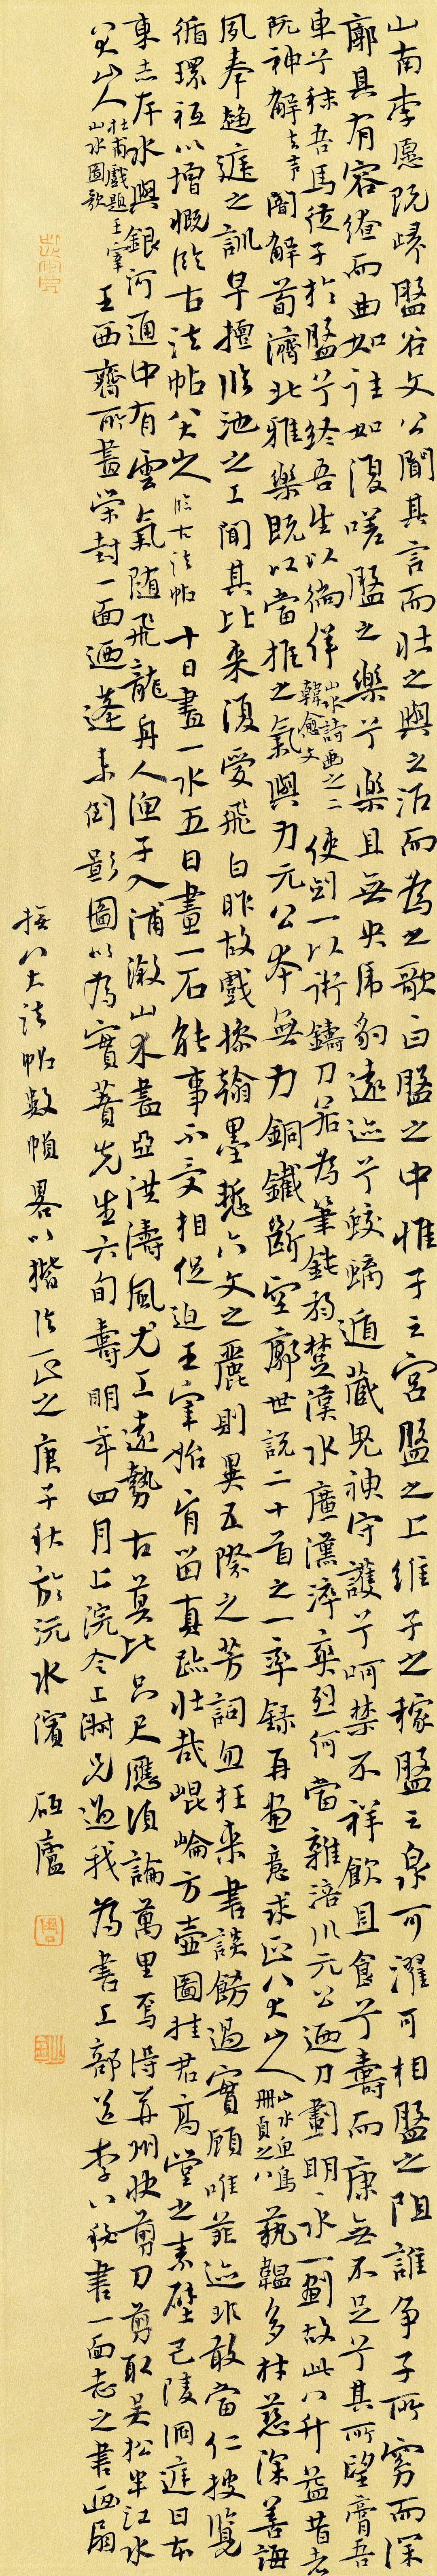 山南李愿既歸盤谷文公聞其言而壯之與之酒而為之歌曰盤之中惟子之宮盤之上維子之稼盤之泉可濯可相盤之阻誰爭子所窈而深
廓其有容繚而曲如往如復嗟盤之樂兮樂且無央虎豹遠迹兮蛟螭遁藏鬼神守護兮呵禁不祥飲且食兮壽而康無不足兮其所望膏吾
車兮秣吾馬從子於盤兮終吾生以徜徉 山水詩画之二 韓愈文 使劍一以術鑄刀若為筆鈍弱楚漢水廣漢淬爽烈何當雜涪川元公迺刀劃明明水一劃故此八升益昔者
阮神解 去声 闇解荀濟北雅樂既以當推之氣與力元公本無力銅鐵斷空廓世說二十首之一率録再畫意求正八大山人 山水画鳥冊頁之八 藐韞多材慈深善誨
夙奉趨庭之訓早擅臨池之工聞其比來復愛飛白昨故戲操翰墨 六文之麗則異五際之芳詞忽枉來書談飾過實顧唯菲迹非敢當仁披覽
循環祗以增慨臨古法帖八大山人 臨古法帖 十日畫一水五日畫一石能事不受相促迫王宰始肯留真跡壯哉崑崙方壺圖挂君高堂之素壁巴陵洞庭日本
東赤岸水與銀河通中有雲氣隨飛龍舟人漁子入浦漵山木盡亞洪濤風尤工遠勢古莫比咫尺應須論萬里焉得并州快剪刀剪取吳松半江水
八大山人 杜甫戲題王宰山水圖歌 王西齋所畫榮封一面迺蓬萊倒影圖以為實蒼先生六旬壽明年四月上浣令上澍兄過我為書工部送李八秘書一面志之書画扇
撫八大法帖數幀畧以楷法正之庚子秋於沅水濱 廬